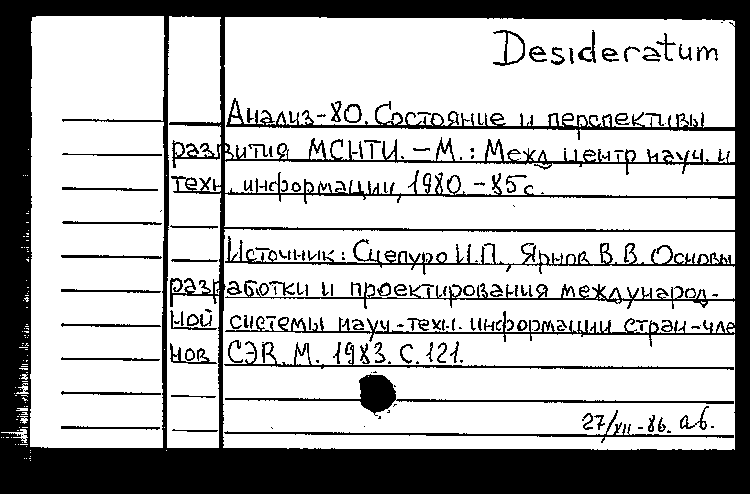 Desideratum
Анализ-80. Состояние и перспективы
развития МСНТИ. – М.: Межд центр науч. и
техн. информации, 1980. – 85 с.
Источник: Сцепуро И.П., Ярнов В.В. Основы
разработки и проектирования международ-
ной системы науч.-техн. информации стран-чле
нов СЭВ. М., 1983. С. 121.
27/XII-86. аб.